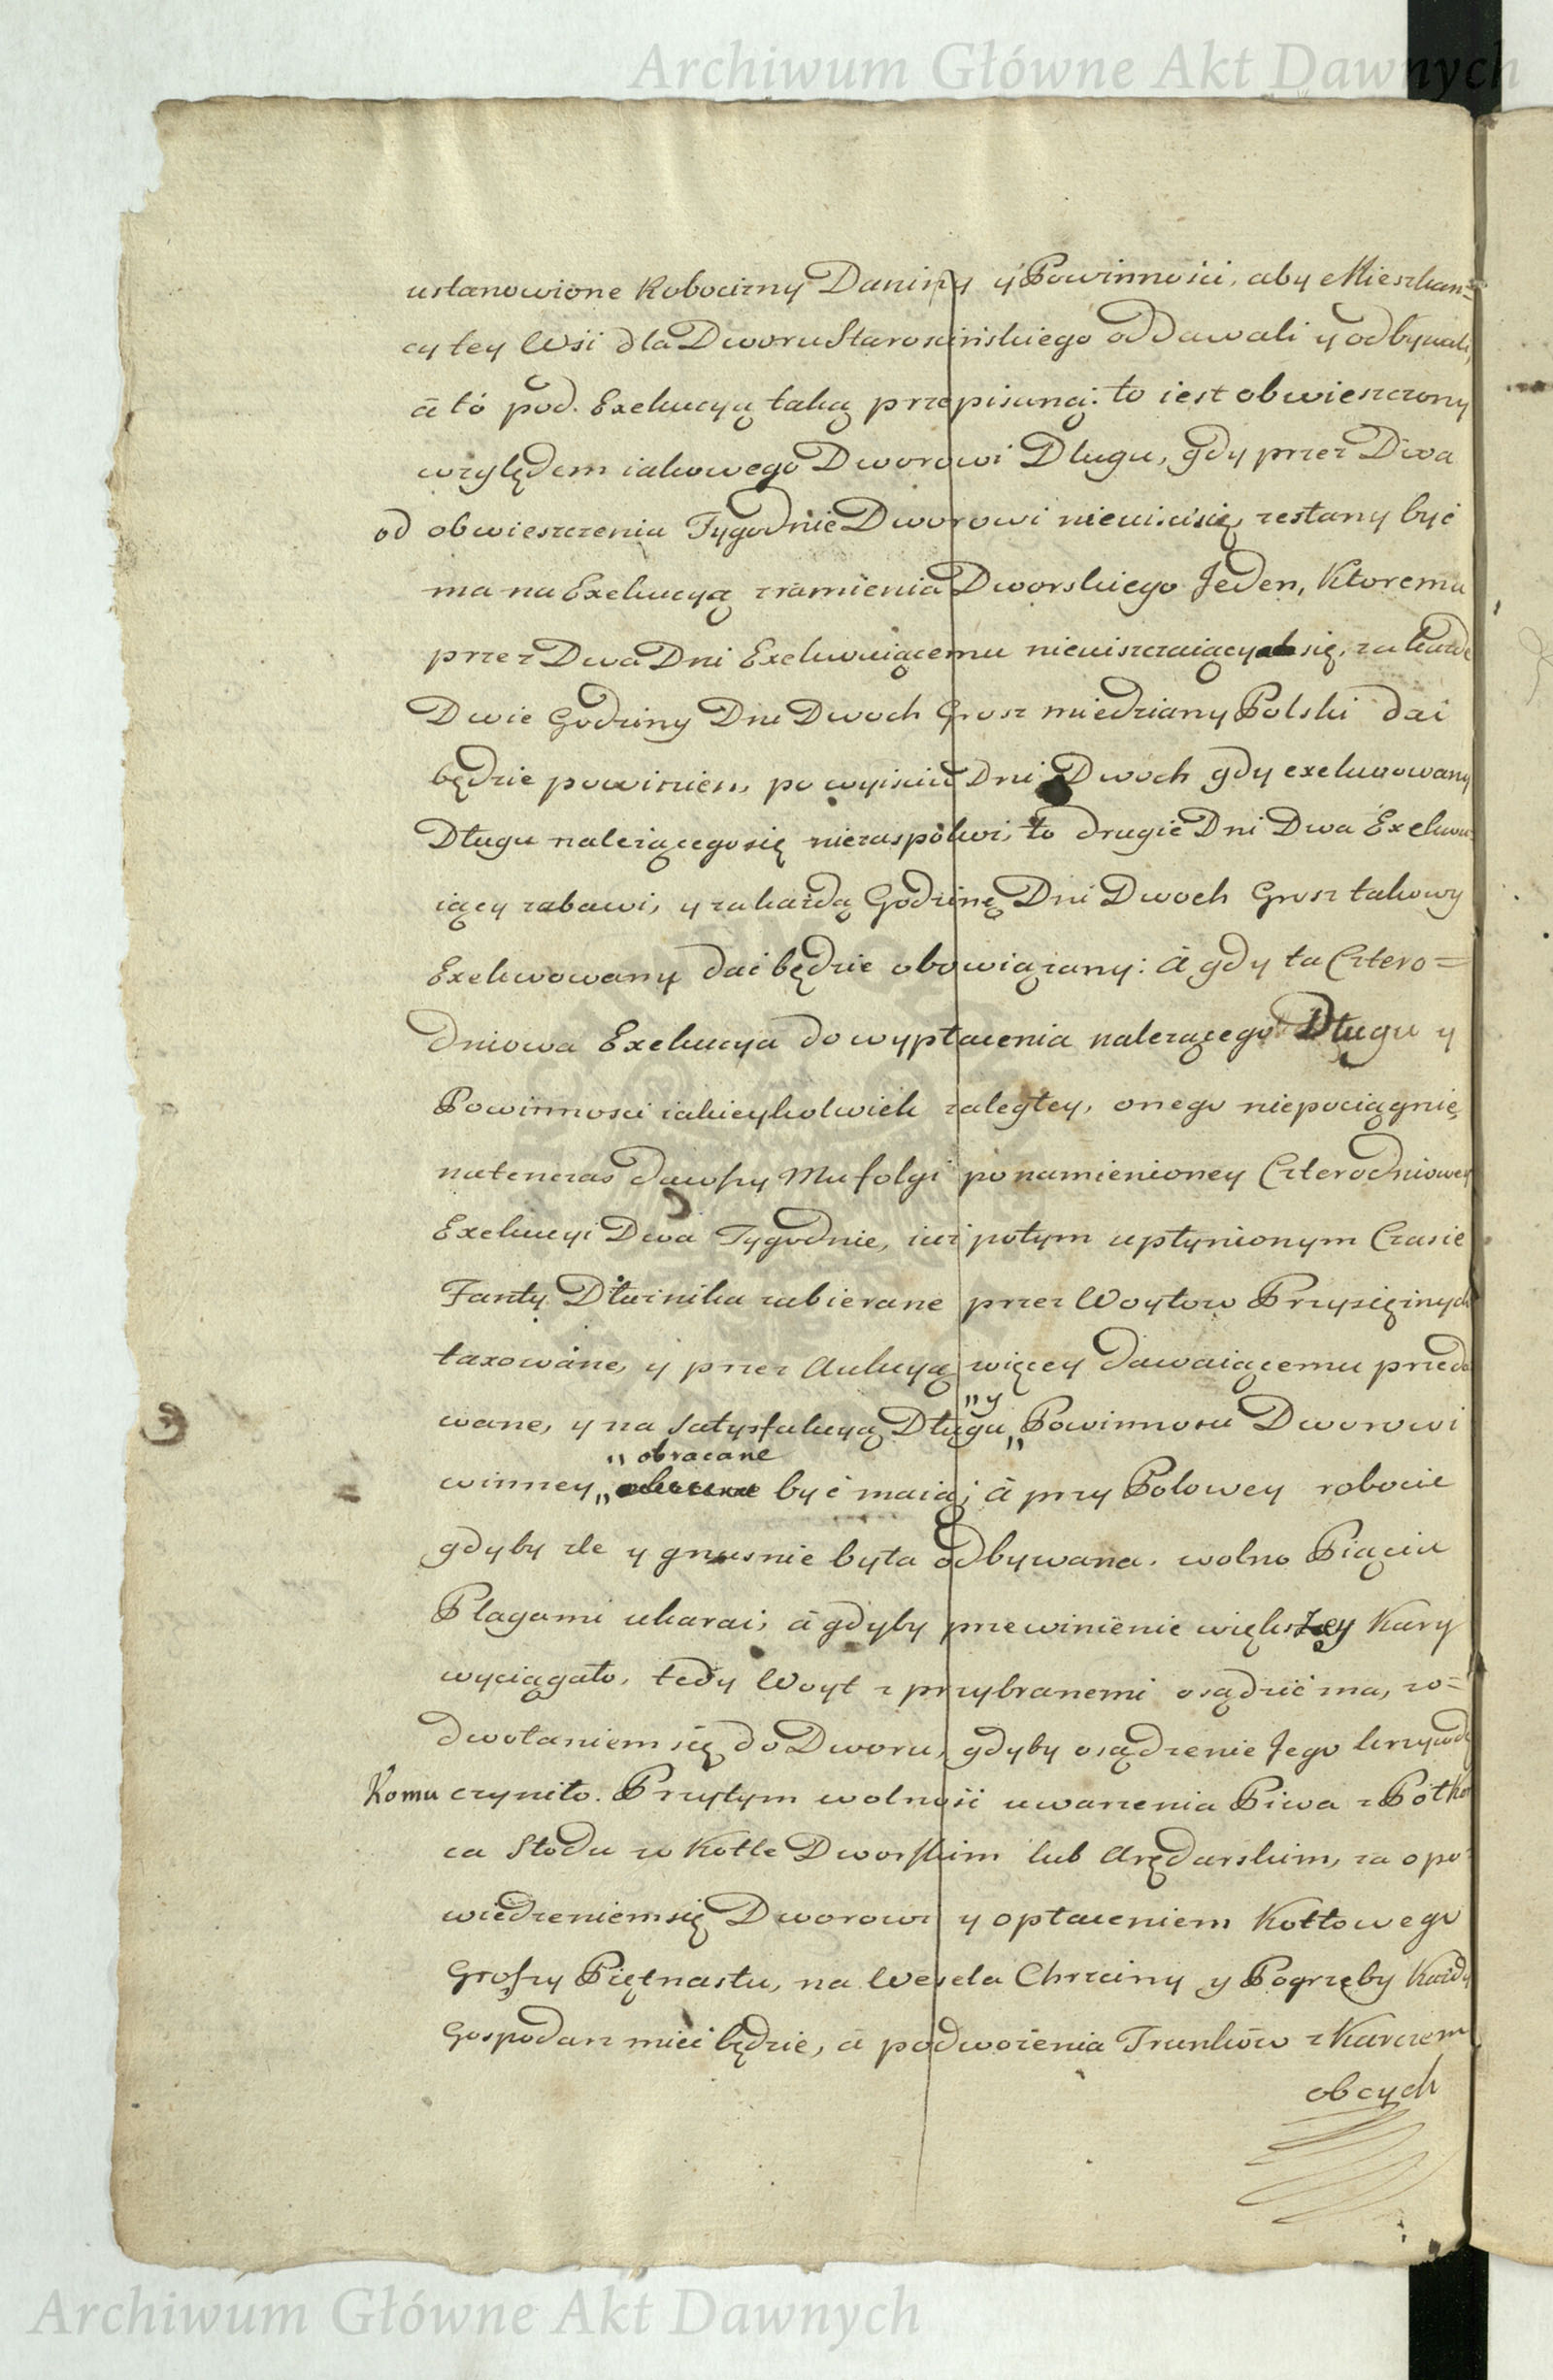 Archiwum Główne Akt Dawnych
ustanowione Robocizny Daniny y Powinności, aby Mieszkań=
cy tey Wsi dla Dworu Starościńskiego oddawali y odbywali,
à tó pod Exekucyą taką przepisuną: to iest obwieszczony
względem iakowego Dworowi Długu, gdy przez Dwa
od obwieszczenia Tygodnie Dworowi nieuiścisię, zesłany być
ma na Exekucyą zramienia Dworskiego Jeden, Ktoremu
przez Dwa Dni Exekwuiącemu nieuiszczaiący się, za każde
Dwie Godziny Dni Dwoch Grosz miedziany Polski dać
będzie powinien, po wyiściu Dni Dwoch gdy exekwowany
Długu należącegosię niezaspokoi, to drugie Dni Dwa Exekwu=
iący zabawi, y za każdą Godzinę Dni Dwoch Grosz takowy
Exekwowany dać będzie obowiązany: à gdy ta Cztero=
dniowa Exekucya do wypłacenia należącego Długu y
Powinności iakieykolwiek zaległey, onego niepociągnie,
natenczas dawszy Mu folgi po namienioney Czterodniowey
Exekucyi Dwa Tygodnie, iuż potym upłynionym Czasie
Fanty Dłużnika zabierane przez Woytow Przysiężnych
taxowane, y przez Aukcyą więcey dawaiącemu przeda
wane, y na Satysfakcyą Długu „y Powinności Dworowi
winney „obracane być maią; à przy Polowey robocie
gdyby źle y gnusnie była odbywana, wolno Piąciu
Plagami ukarać, à gdyby przewinienie większey Kary
wyciągało, tedy Woyt z przybranemi osądzić ma, zo=
dwołaniem się do Dworu, gdyby osądzenie Jego krzywdę
Komu czyniło. Przytym wolność uwarzenia Piwa z Połkor
ca Słodu w Kotle Dworskim lub Arędarskim, za opo=
wiedzeniemsię Dworowi y opłaceniem Kotłowego
Groszy Piętnastu, na Wesela Chrzciny y Pogrzeby Każdy
Gospodarz mieć będzie, à podwożenia Trunków z Karczem
obcych
Archiwum Główne Akt Dawnych